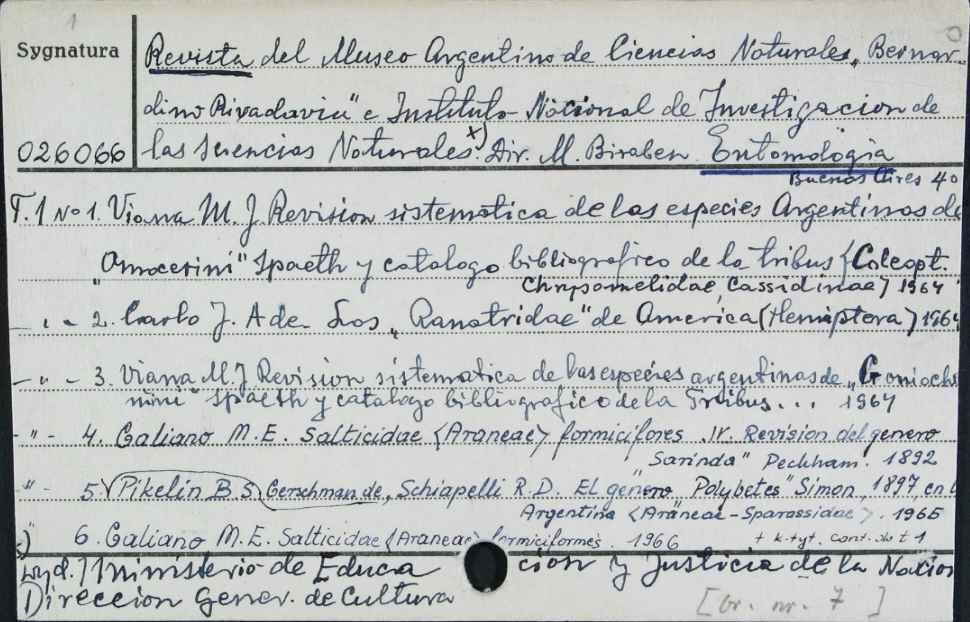 1
0
Sygnatura
Revista del Museo Argentino de Ciencias Naturales „Bernar-
dino Rivadavia" e Instituto Nacional de Investigacion de
026066 las Sciencias Naturales. x) Dir. M. Biraben Entomologia
Buenos Aires 40
T. 1 No 1. Viana M. J Revision sistematica de las especies Argentinas de
„Omocerini" Spaeth y catalogo bibliografico de la tribus (Coleopt.
Chrysomelidae, Cassidinae) 1964
— „ — 2. Carlo J. A de. Los „Ranatridae" de America (Hemiptera) 1964
— „ — 3. Viana M. J Revision sistematica de las especies argentinas de „Goniochi
nini" Spaeth y catalogo bibliografico de la Tribus... 1964
— „ — 4. Galiano M.E. Salticidae (Araneae) formiciformes. IV. Revision del genero
„Sarinda" Peckham. 1892
— „ — 5. Pikelin B.S. Gerschman de, Schiapelli R.D. El genero „Polybetes" Simon, 1897, en l
Argentina (Araneae-Sparassidae). 1965
6. Galiano M.E. Salticidae (Araneae) formiciformes. 1966 + k-tyt. cont. do t 1
x)
wyd.) Ministerio de Educa cion y Justicia de la Nacion
Direccion Gener. de Cultura
[br. nr. 7]